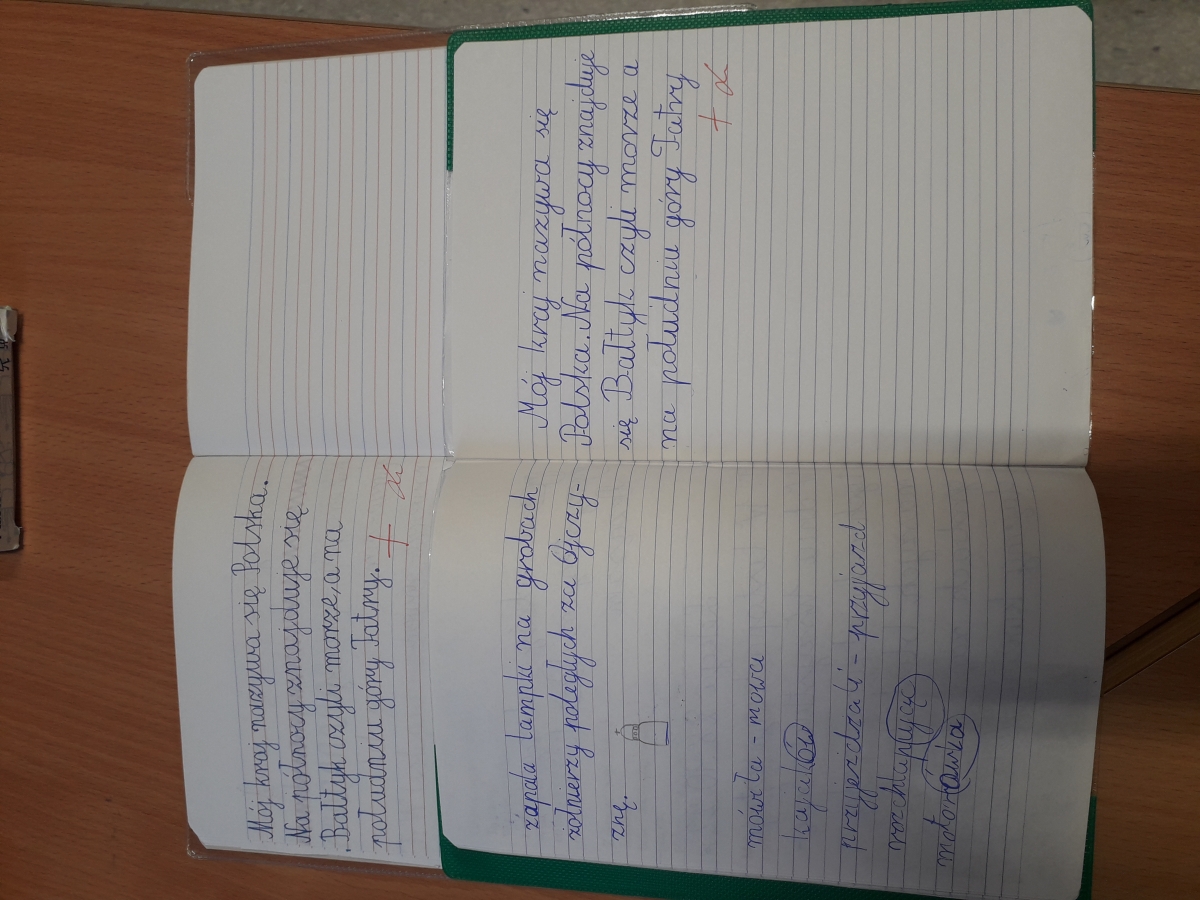 Mój kraj nazywa się Polska.
Na północy znajduje się
Bałtyk czyli morze, a na
południu góry Tatry.
+
zapala lampki na grobach
żołnierzy poległych za Ojczy-
znę.
mówiła - mowa
kajaków
przyjeżdzać - przyjazd
rozchlapujący
motorówka
Mój kraj nazywa się
Polska. Na północy znajduje
się Bałtyk czyli morze a
na południu góry Tatry
+